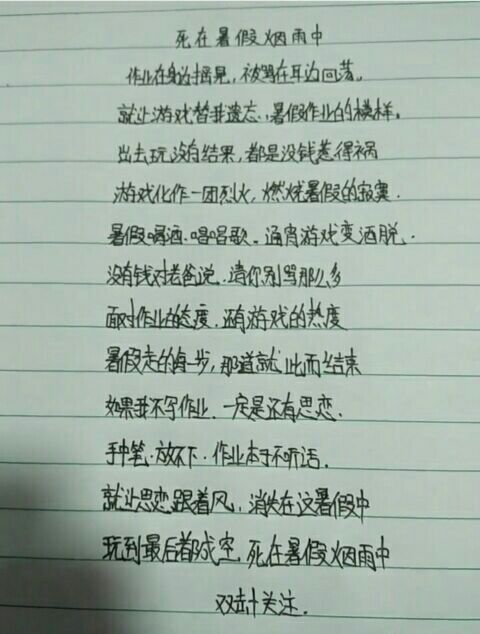 死在暑假烟雨中
作业在身边摇晃，被骂在耳边回荡。
就让游戏替我遗忘，暑假作业的模样。
出去玩没有结果，都是没钱惹得祸
游戏化作一团烈火，燃烧暑假的寂寞.
暑假喝酒.唱唱歌.通宵游戏变洒脱.
没有钱对老爸说.请你别骂那么多
面对作业的态度.还有游戏的热度
暑假走的每一步，那道就此而结束
如果我不写作业.一定是还有思恋.
手中笔.放不下.作业本子不听话.
就让思恋跟着风，消失在这暑假中
玩到最后都成空.死在暑假烟雨中
双击关注.